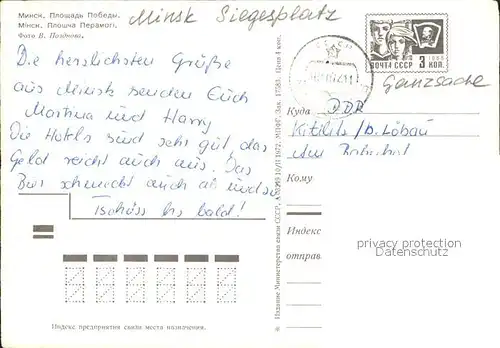 Минск. Площадь Победы.
Мінск. Плошча Перамогі.
Фото В. Полднова.
Minsk Siegesplatz
Die herzlichsten Grüße
aus Minsk senden Euch
Martina und Harry
Die Hotels sind sehr gut, das
Geld reicht auch aus. Das
Bier schmeckt auch ab und zu
Tschüss bis bald!
СССР
ПОЧТА СССР 3 КОП.
1966
Ganzsache
Куда DDR
Kittlitz /b. Löbau
Am Bahnhof
Кому
Индекс
отправ
privacy protection
Datenschutz
Издание Министерства связи СССР.
Цена 4 коп.
Индекс предприятия связи места назначения.